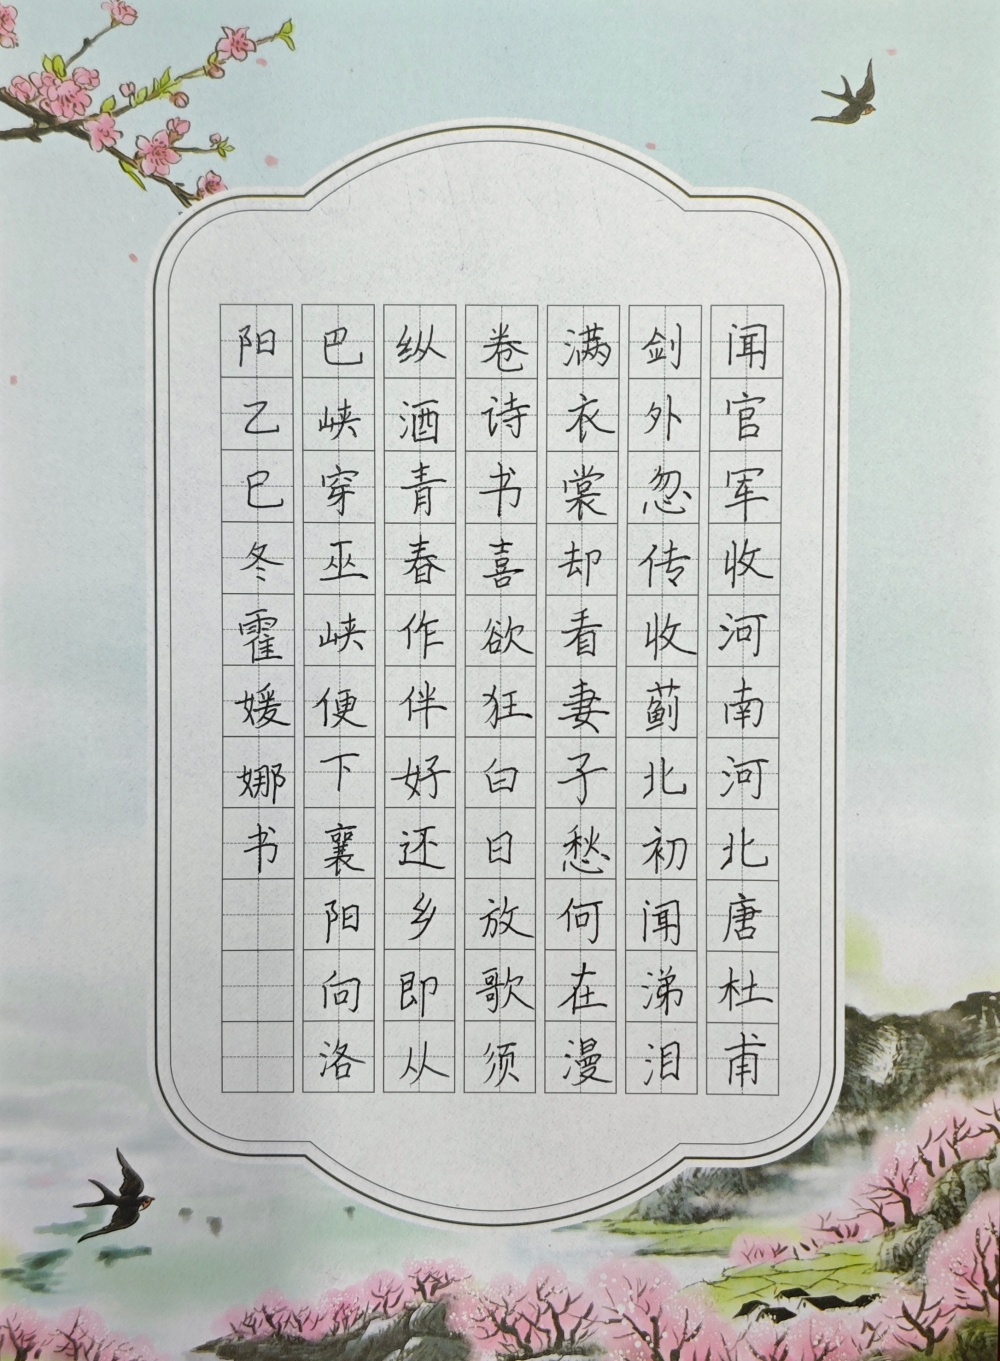 闻官军收河南河北唐杜甫
剑外忽传收蓟北初闻涕泪
满衣裳却看妻子愁何在漫
卷诗书喜欲狂白日放歌须
纵酒青春作伴好还乡即从
巴峡穿巫峡便下襄阳向洛
阳乙巳冬霍媛娜书